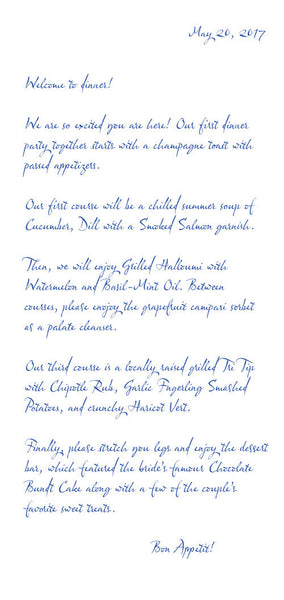 May 20, 2017
Welcome to dinner!
We are so excited you are here! Our first dinner
party together starts with a champagne toast with
passed appetizers.
Our first course will be a chilled summer soup of
Cucumber, Dill with a Smoked Salmon garnish.
Then, we will enjoy Grilled Halloumi with
Watermelon and Basil-Mint Oil. Between
courses, please enojoy the grapefruit campari sorbet
as a palate cleanser.
Our third course is a locally raised grilled Tri Tip
with Chipotle Rub, Garlic Fngerling Smashed
Potatoes, and crunchy Haricot Vert.
Finally, please stretch you legs and enjoy the dessert
bar, which featured the bride's famour Chocolate
Bundt Cake along with a few of the couple's
favorite sweet treats.
Bon Appetit!